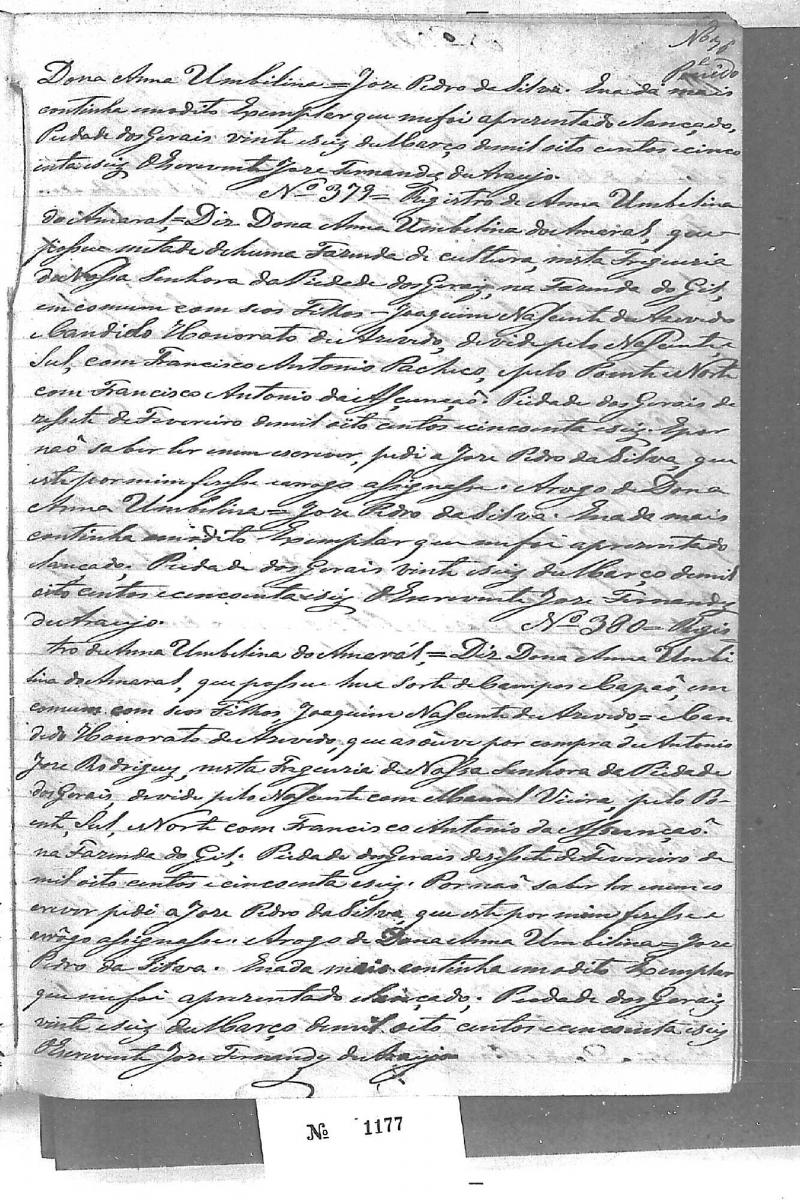 Dona Anna Umbilina = Joze Pedro da Silva. Enada mais
continha emodito Exemplar que mefoi aprezentado elançado,
Piedade dos Geraiz vinte eseiz de Março demil oito centos ecinco
entaeseiz OEscrevente Joze Fernandez de Araujo.
Nº 379 = Registro de Anna Umbilina
do Amaral, = Diz Dona Anna Umbilina do Amaral, que
possue metade dehuma Fazenda de cultura, nesta Freguezia
de Nossa Senhora da Piedade dos Geraiz, na Fazenda do Gil,
emcomum com seos Filhos - Joaquim Nascente de Azevedo
e Candido Honorato de Azevedo, devide pelo Nascente, e
Sul, com Francisco Antonio Pacheco, epelo Poente e Norte
com Francisco Antonio da Asçunçaõ. Piedade dos Gerais de
zessete de Fevereiro demil oito centos ecincoenta eseiz. Epor
naõ saber ler enem escrever, pedi a Joze Pedro da Silva, que
este por mim fizesse earogo assignasse. Arogo de Dona
Anna Umbilina = Joze Pedro da Silva. Enada mais
continha emodito Exemplar que mefoi aprezentado
elançado. Piedade dos Gerais vinte eseiz de Março demil
oito centos ecincoenta eseiz OEscrevente Joze Fernandez
de Araujo. Nº 380 = Regis=
tro de Anna Umbilina do Amarál, = Diz Dona Anna Umbi
lina do Amaral, que possue hua sorte de Campos e Capaõ, em
comum com seos Filhos Joaquim Nascente de Azevedo, = e Can
dido Honorato de Azevedo, que as ouve por compra de Antonio
Joze Rodriguez, nesta Freguezia de Nossa Senhora da Piedade
dos Gerais, devide pelo Nascente com Manoel Vieira, pelo Po
ente, Sul, e Norte com Francisco Antonio da Assunçaõ
na Fazenda do Gil; Piedade dos Gerais dezessete de Fevereiro de
mil oito centos e cincoenta eseiz. Por naõ saber ler enem es
crever pedi a Joze Pedro da Silva, que este por mim fizesse e
arôgo assignasse. Arogo de Dona Anna Umbilina = Joze
Pedro da Silva. Enada mais continha emodito Exemplar
que mefoi aprezentado elançado. Piedade dos Geraiz
vinte eseiz de Março demil oito centos ecincoenta eseiz
OEscrevente Joze Fernandez de Araujo
Nº 1177